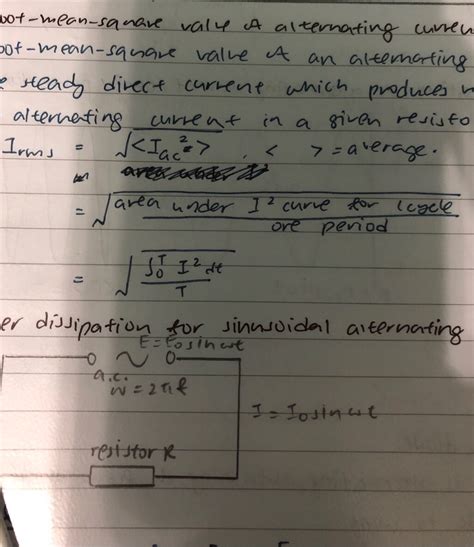 oot-mean-square value of alternating curren
oot-mean-square value of an alternating
e steady direct current which produces
alternating current in a given resisto
Irms = √<I_ac²> , < > = average.
= √(area under I² curve for 1 cycle / one period)
= √(∫₀ᵀ I² dt / T)
er dissipation for sinusoidal alternating
E = E₀ sin ωt
a.c.
ω = 2πf
I = I₀ sin ωt
resistor R